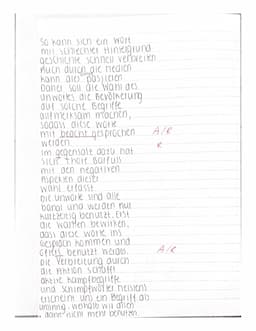 So kann sich ein Wort
mit schlechter Hintergrund
geschichte schnell verbreiten
Auch durch die Medien
kann dies passieren.
Daher soll die Wahl des
Unwortes die Bevölkerung
auf solche Begriffe
aufmerksam machen,
sodass diese Worte
mit bedacht gesprochen A/R
werden. R
Im gegensatz dazu hat
sich Thore Barfuss
mit den negativen
Aspekten dieser
Wahl erfasst.
Die Unworte sind alle
banal und werden nur
kurzzeitig benutzt. Erst
die Wahlen bewirken,
dass diese Worte ins
Gespräch kommen und
öfters benutzt werden. A/R
Die Verbreitung durch
die Aktion schafft
aktive Kampfbegriffe
und Schimpfwörter
erscheint uns ein Begriff als
unsinnig, weshalb wir
nicht mehr benutzen.